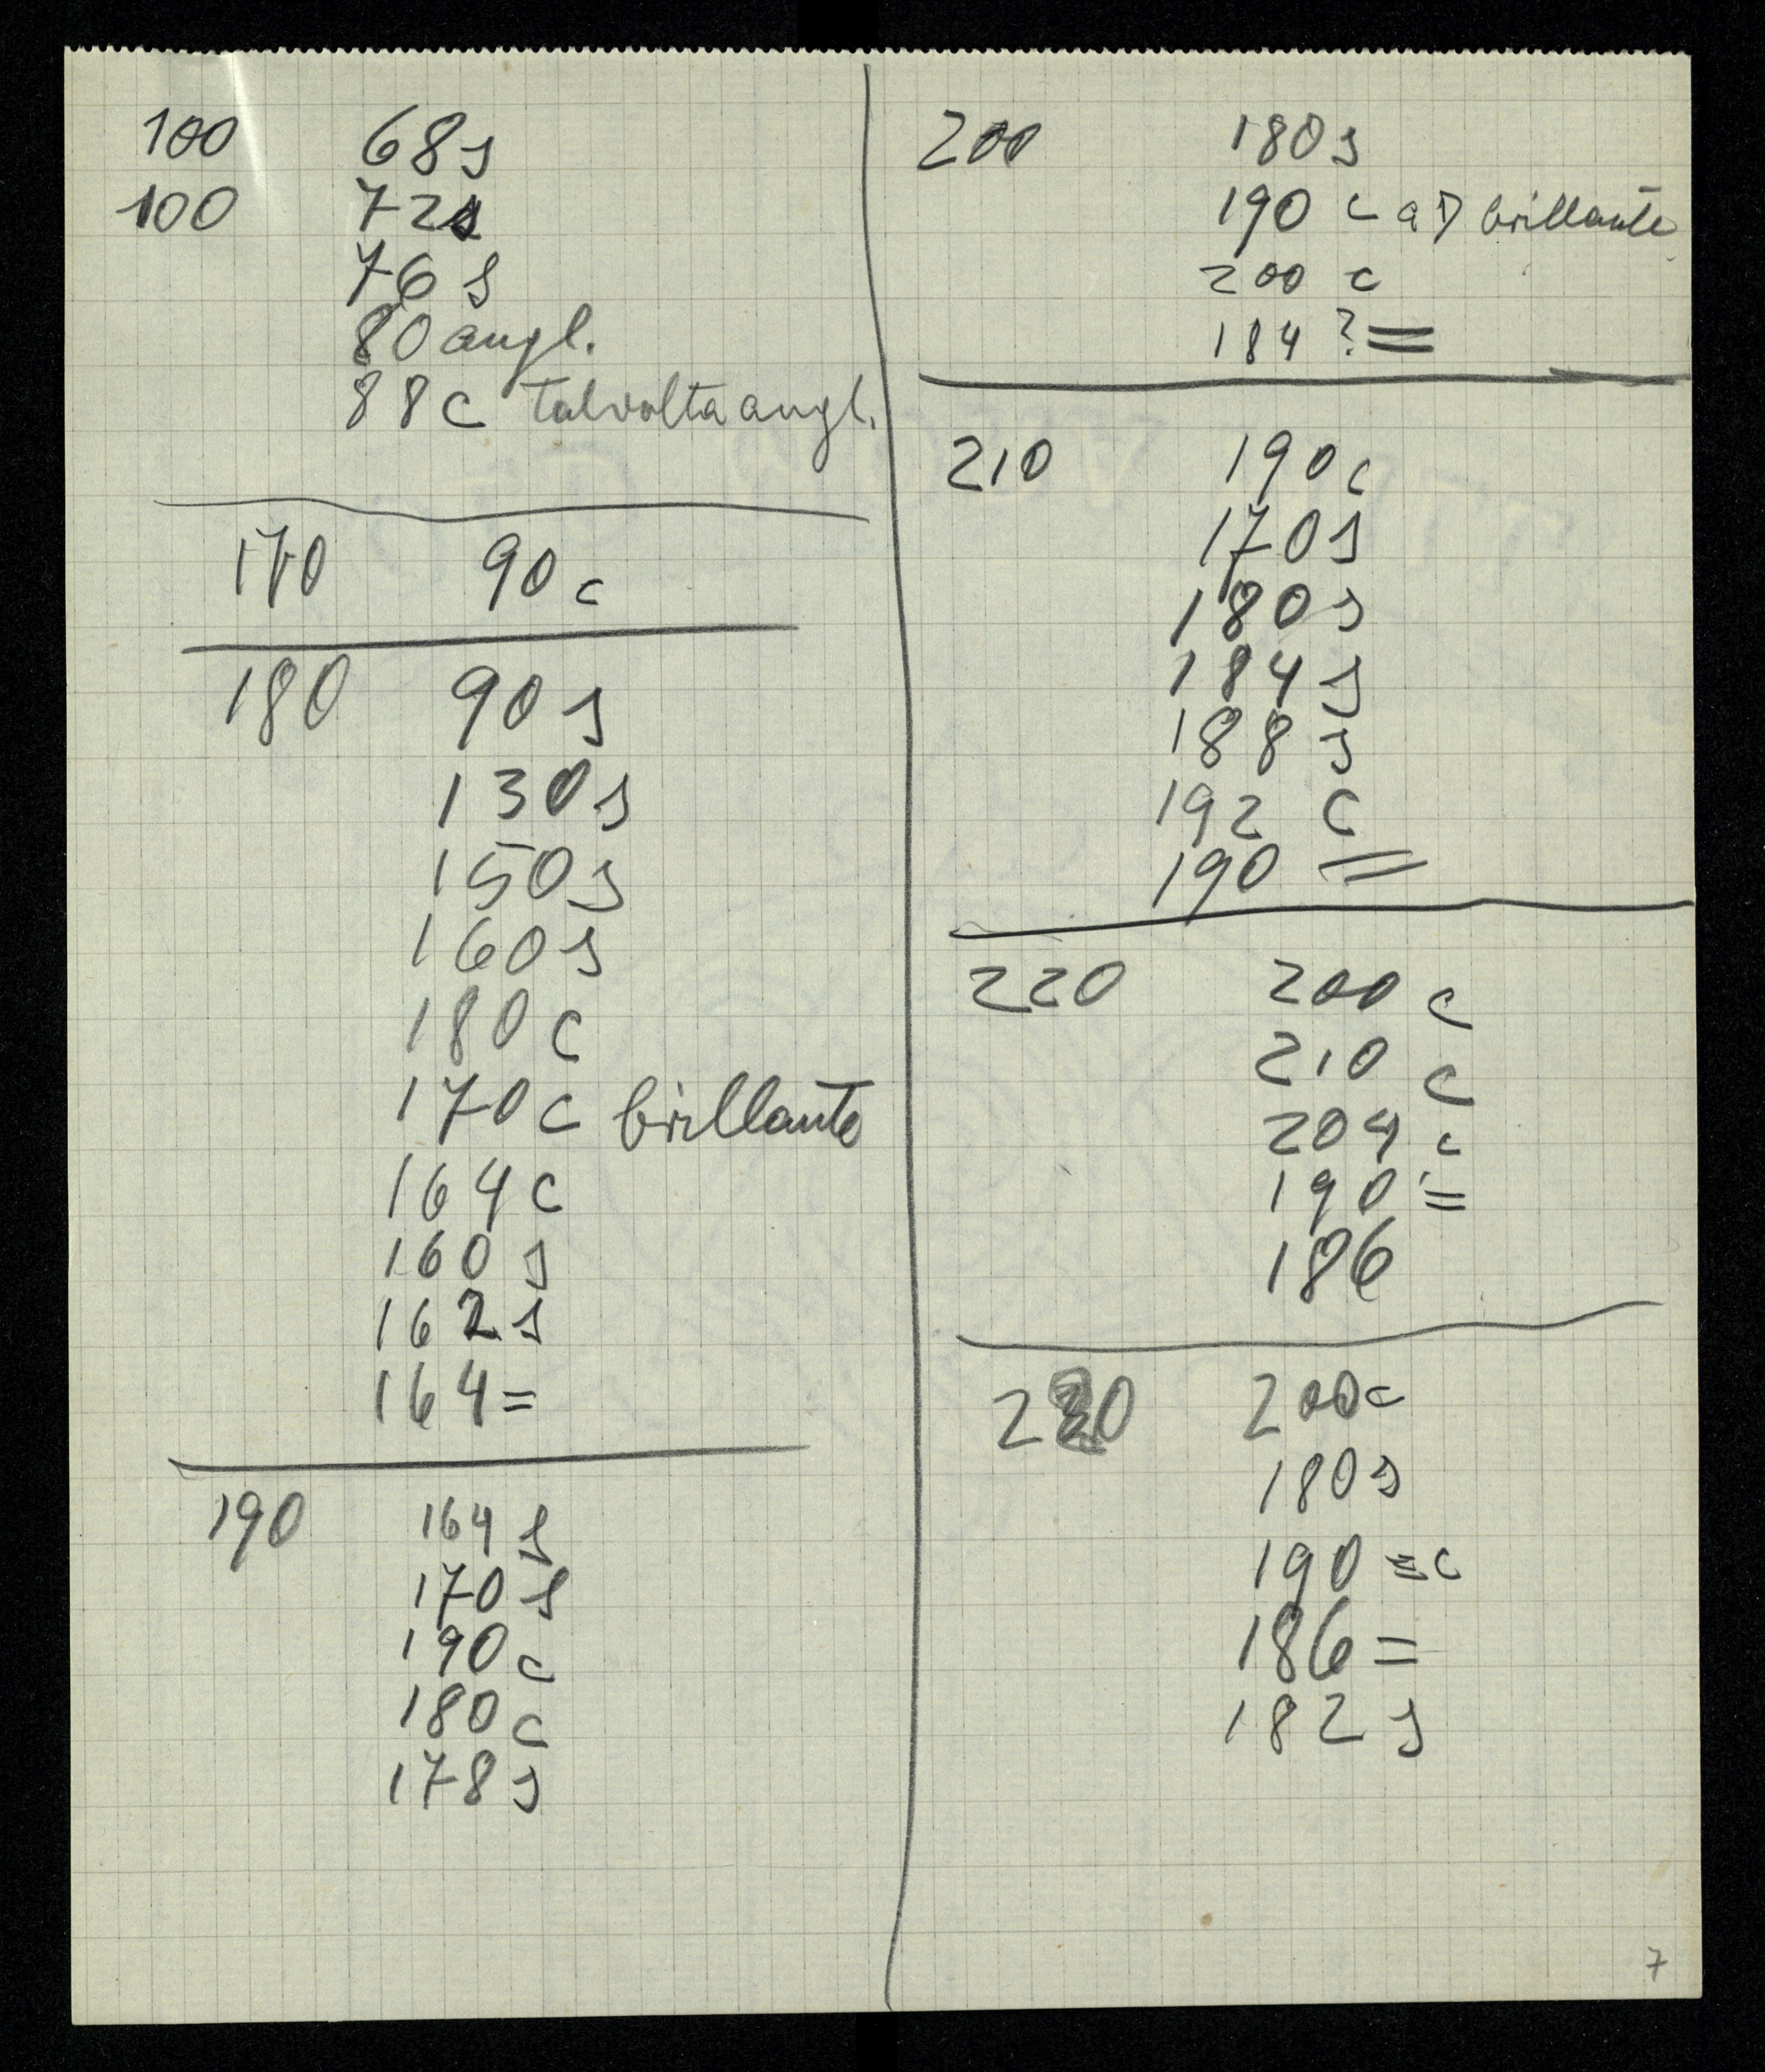 100 68s
100 72s
76 s
80 angl.
88 c talvolta angl.
170 90 c
180 90 s
130 s
150 s
160 s
180 c
170 c brillante
164 c
160 s
162 s
164 =
190 164 s
170 s
190 c
180 c
178 s
200 180 s
190 c brillante
200 c
184 ? =
210 190 c
170 s
180 s
184 s
188 s
192 c
190 =
220 200 c
210 c
204 c
190 =
186
200 c
180 s
190 = c
186 =
182 s
7